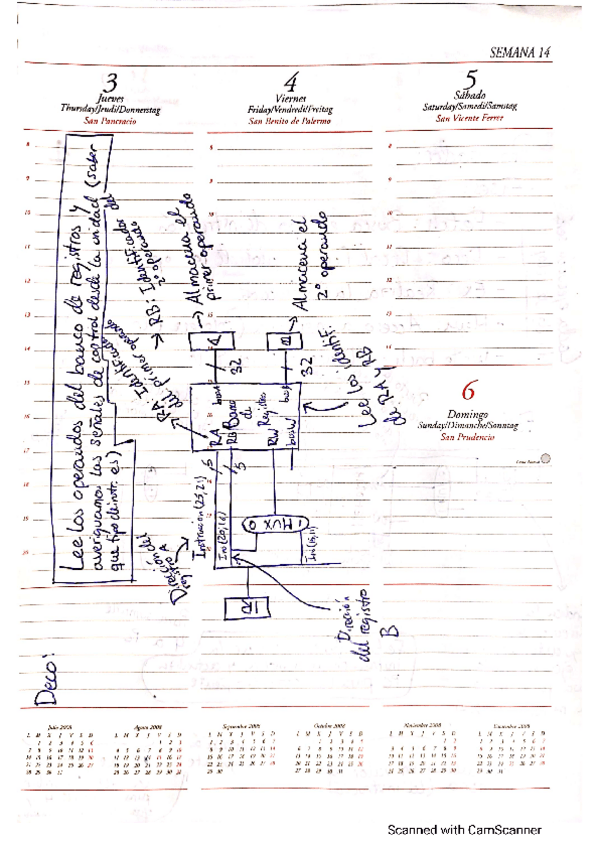 SEMANA 14
3
Jueves
Thursday/Jeudi/Donnerstag
San Pancracio
4
Viernes
Friday/Vendredi/Freitag
San Benito de Palermo
5
Sábado
Saturday/Samedi/Samstag
San Vicente Ferrer
6
Domingo
Sunday/Dimanche/Sonntag
San Prudencio
Deco:
Lee los operandos del banco de registros y
averiguamos las señales de control desde la unidad (saber
que tipo de intr. es)
RA: Identificador
del primer operando
RB: Identificador del
2º operando
Almacena el
primer operando
Almacena el
2º operando
A
B
32
32
busA
busB
RA
RB
Banco
de
Registros
RW
busW
Lee los identif.
de RA y RB
5
5
Dirección del
registro A
Instrucción (25,21)
Ins (20,16)
1 MUX 0
Ins (15,11)
Dirección
del registro
B
Julio 2008
Agosto 2008
Septiembre 2008
Octubre 2008
Noviembre 2008
Diciembre 2008
Scanned with CamScanner